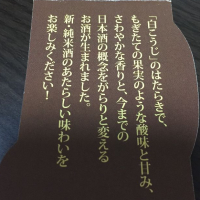 「白こうじ」のはたらきで、
もぎたての果実のような酸味と甘み、
さわやかな香りと、今までの
日本酒の概念をがらりと変える
お酒が生まれました。
新・純米酒のあたらしい味わいを
お楽しみください!